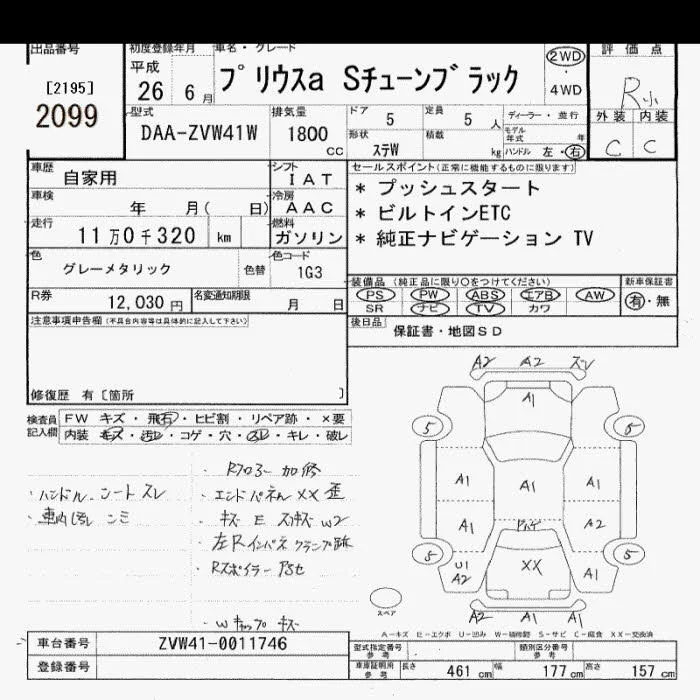 出品番号 初度登録年月 車名・グレード 評価点
[2195]
2099
平成
26 6月
プリウスa Sチューンブラック
2WD
・
4WD
R小
外装 内装
C C
型式 排気量 ドア 定員 ディーラー・並行
DAA-ZVW41W 1800 cc 5 5 人 モデル年式 年
形状 積載
ステW kg ハンドル 左・右
車歴 シフト セールスポイント(正常に機能するものに限ります)
自家用 IAT
* プッシュスタート
車検 冷房
年 月( 日) AAC
* ビルトインETC
走行 燃料
11万0千320 km ガソリン
* 純正ナビゲーション TV
色 色コード
グレーメタリック 色替 1G3
装備品 (純正品に限り○をつけてください) 新車保証書
PS PW ABS エアB AW 有・無
SR ナビ TV カワ
R券 名変通知期限
12,030円 月 日
注意事項申告欄 (不具合内容等は具体的に記入して下さい)
後日品
保証書・地図SD
修復歴 有〔箇所 〕
検査員記入欄
FW キズ・飛石・ヒビ割・リペア跡・×要
内装 キズ・汚レ・コゲ・穴・スレ・キレ・破レ
・ハンドル シート スレ
・車内汚レ シミ
・Rフロアー 加修
・エンドパネル XX 歪
・左Rインパネ クランプ跡
・Rスポイラー
・Wキャップ キズ
A2 A2 スレ
A1
5 5
A1 A1 A1
A1 A2
5 5
U1
A2
XX
A1
A2 A1 A1
スペア
A-キズ E-エクボ U-凹み W-補修跡 S-サビ C-腐食 XX-交換済
車台番号 ZVW41-0011746
登録番号
型式指定番号 参考 類別区分番号 参考
車庫証明用 参考 長さ 461 cm 幅 177 cm 高さ 157 cm